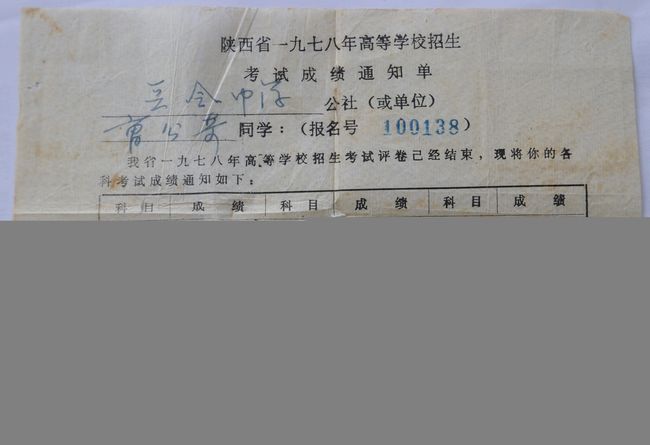 陕西省一九七八年高等学校招生
考试成绩通知单
公社（或单位）
同学：（报名号 100138）
我省一九七八年高等学校招生考试评卷已经结束，现将你的各
科考试成绩通知如下：
科目 成绩 科目 成绩 科目 成绩